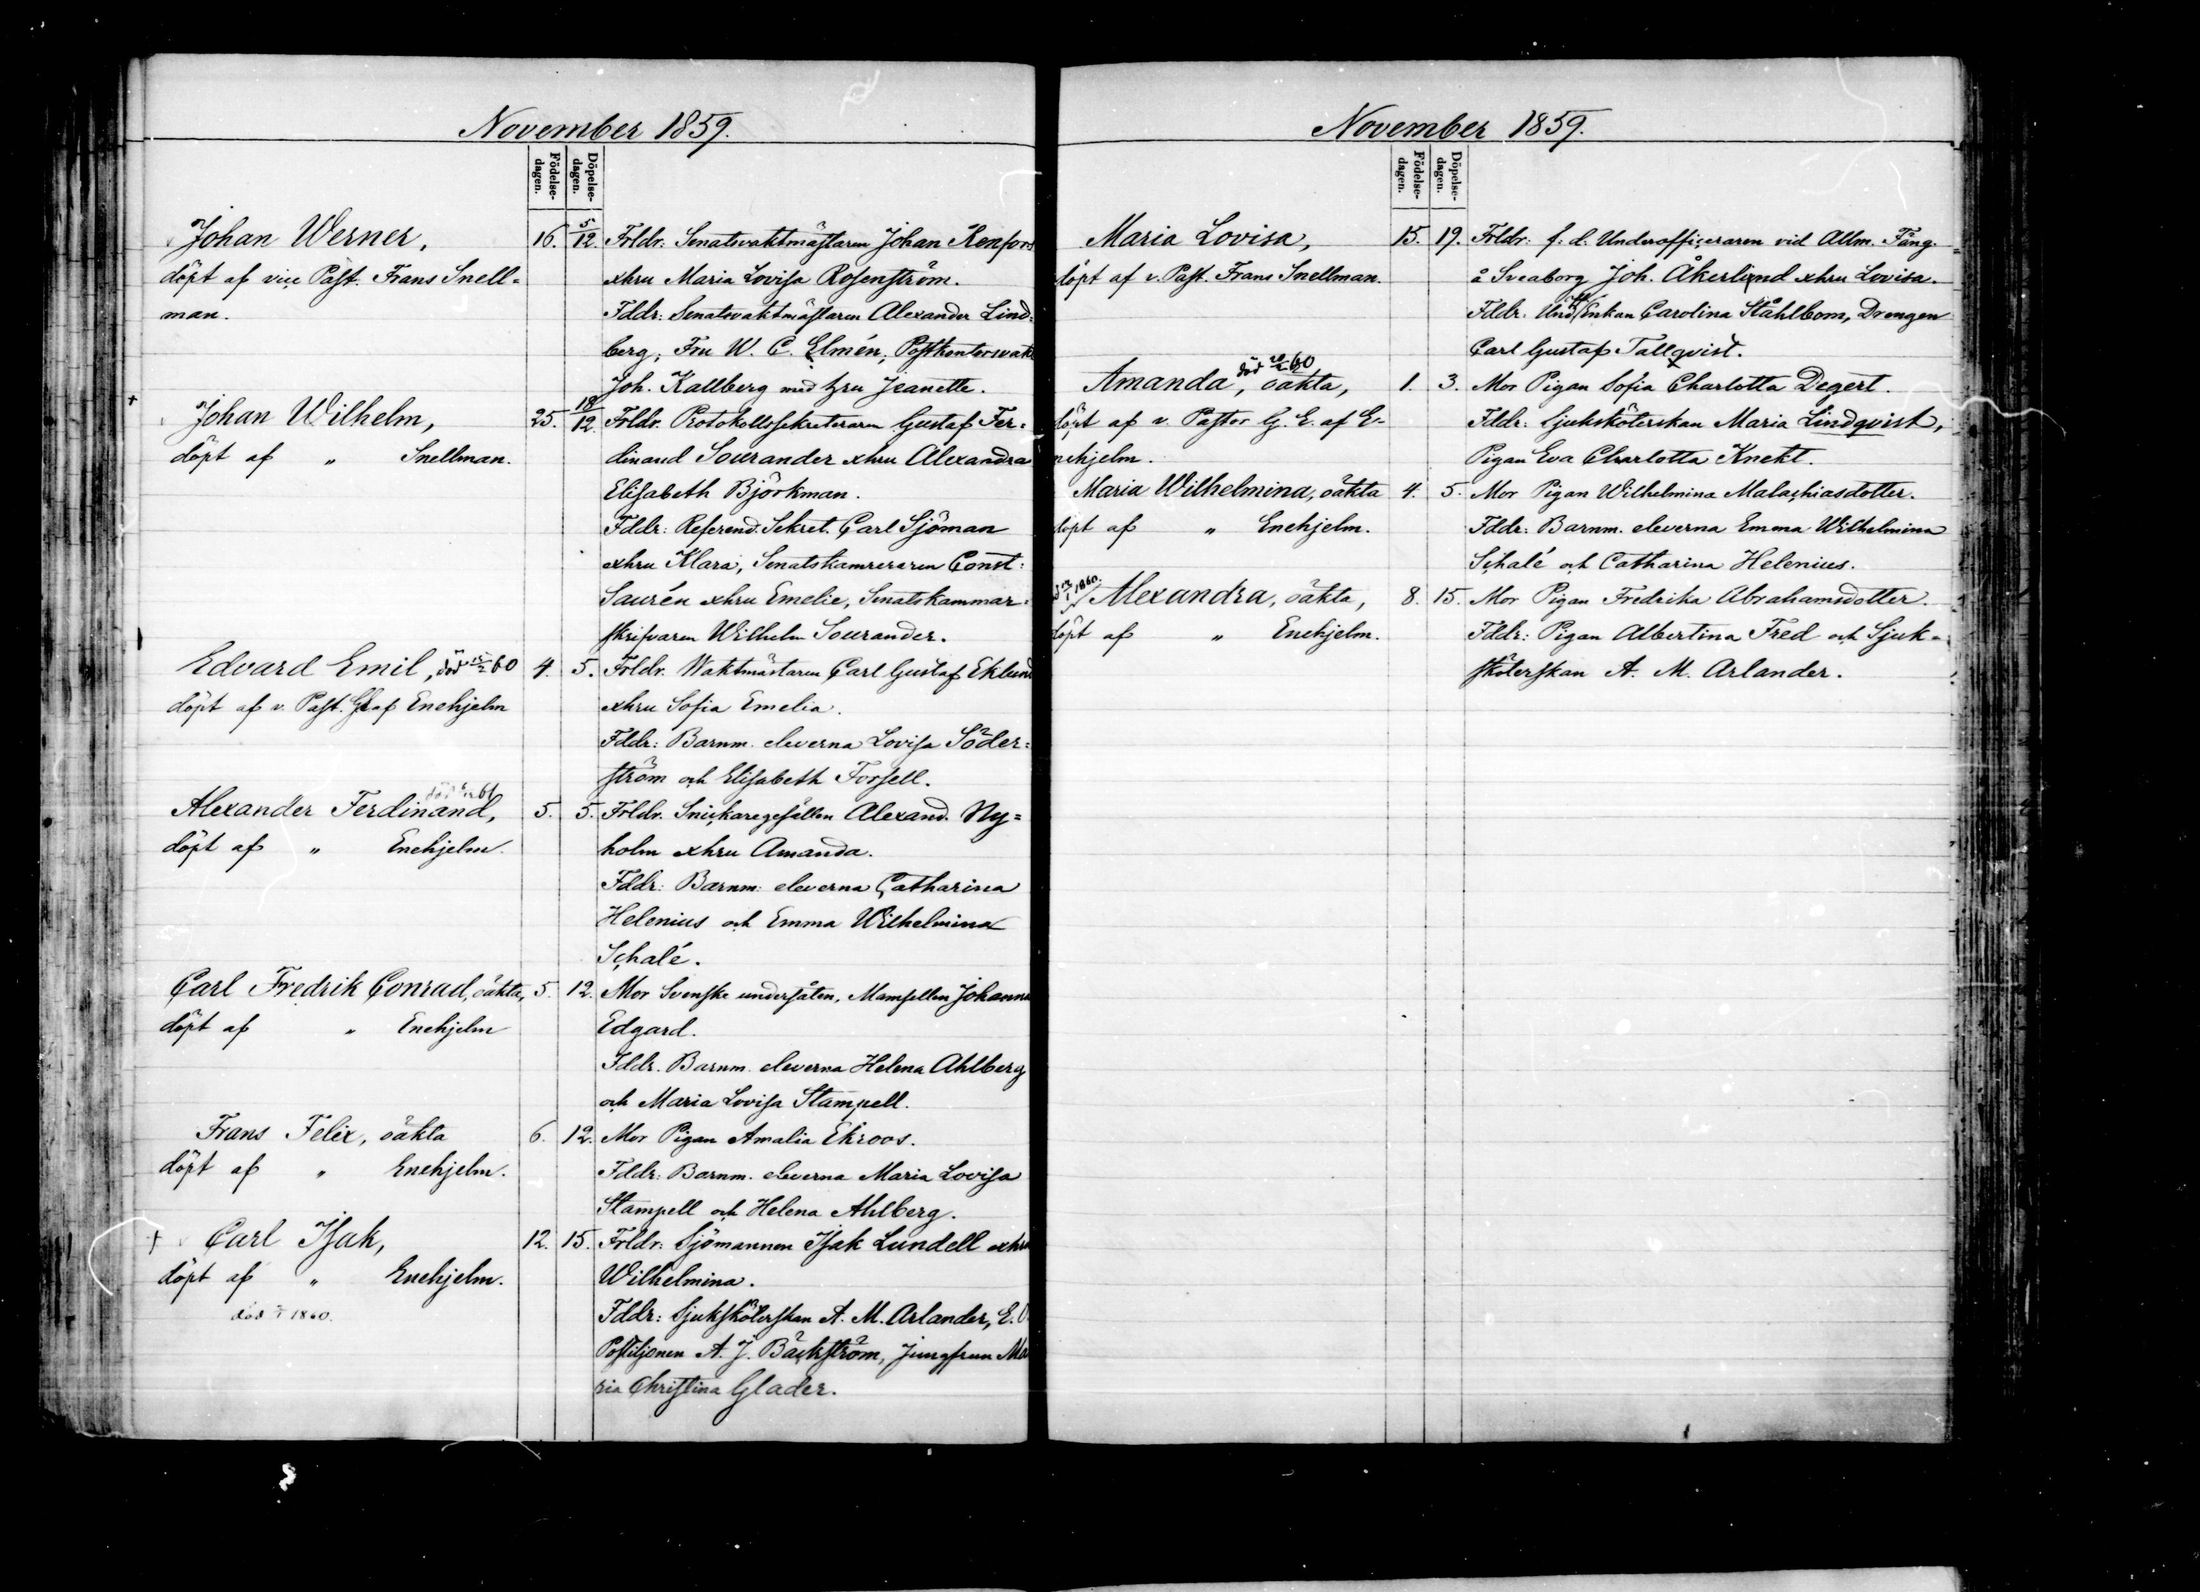 November 1859.
Födelse-
dagen.
Döpelse-
dagen.
Johan Werner, 16. 5/12. Frldr. Senatsvaktmästaren Johan Renfors
döpt af vice Past. Frans Snell= xhru Maria Lovisa Rosenström.
man. Fddr: Senatsvaktmästaren Alexander Lind=
berg, Fru W. C. Elmén, Postkontorsvakt
Joh. Kallberg med hru Jeanette.
Johan Wilhelm, 25. 18/12. Frldr. Protokollssekreteraren Gustaf Fer=
döpt af " Snellman. dinand Sourander xhru Alexandra
Elisabeth Björkman.
Fddr: Referend. Sekret. Carl Sjöman
xhru Klara, Senatskamreraren Const:
Saurén xhru Emelie, Senatskammar=
skrifvaren Wilhelm Sourander.
Edvard Emil, död 60 4. 5. Frldr. Waktmästaren Carl Gustaf Eklund
döpt af v. Past. af Enehjelm xhru Sofia Emelia.
Fddr: Barnm. eleverna Lovisa Söder=
ström och Elisabeth Forsell.
död 61
Alexander Ferdinand, 5. 5. Frldr. Snickaregesällen Alexand. Ny=
döpt af " Enehjelm. holm xhru Amanda.
Fddr: Barnm: eleverna Catharina
Helenius och Emma Wilhelmina
Schalé.
Carl Fredrik Conrad, oäkta, 5. 12. Mor Svenske undersåten, Mamsellen Johanna
döpt af " Enehjelm Edgard.
Fddr. Barnm. eleverna Helena Ahlberg
och Maria Lovisa Stampell.
Frans Felix, oäkta 6. 12. Mor Pigan Amalia Ekroos.
döpt af " Enehjelm. Fddr: Barnm. eleverna Maria Lovisa
Stampell och Helena Ahlberg.
† Carl Isak, 12. 15. Frldr: Sjömannen Isak Lundell xhru
döpt af " Enehjelm. Wilhelmina.
död 1860. Fddr: Sjuksköterskan A. M. Arlander, E. O
Postiljonen A. J. Bäckström, Jungfrun Ma
ria Christina Glader.
November 1859.
Födelse-
dagen.
Döpelse-
dagen.
Maria Lovisa, 15. 19. Frldr: f: d: Underofficeraren vid Allm. Fång-
döpt af v. Past. Frans Snellman. å Sveaborg Joh. Åkerlund xhru Lovisa.
Fddr. Enkan Carolina Ståhlbom, Drengen
Carl Gustaf Tallqvist.
död 60
Amanda, oäkta, 1. 3. Mor Pigan Sofia Charlotta Degert.
döpt af v. Pastor G. E. af E- Fddr: Sjuksköterskan Maria Lindqvist,
nehjelm. Pigan Eva Charlotta Knekt.
Maria Wilhelmina, oäkta 4. 5. Mor Pigan Wilhelmina Malachiasdotter.
döpt af " Enehjelm. Fddr: Barnm. eleverna Emma Wilhelmina
Schalé och Catharina Helenius.
1860.
Alexandra, oäkta, 8. 15. Mor Pigan Fredrika Abrahamsdotter.
döpt af " Enehjelm. Fddr: Pigan Albertina Fred och Sjuk=
sköterskan A. M. Arlander.